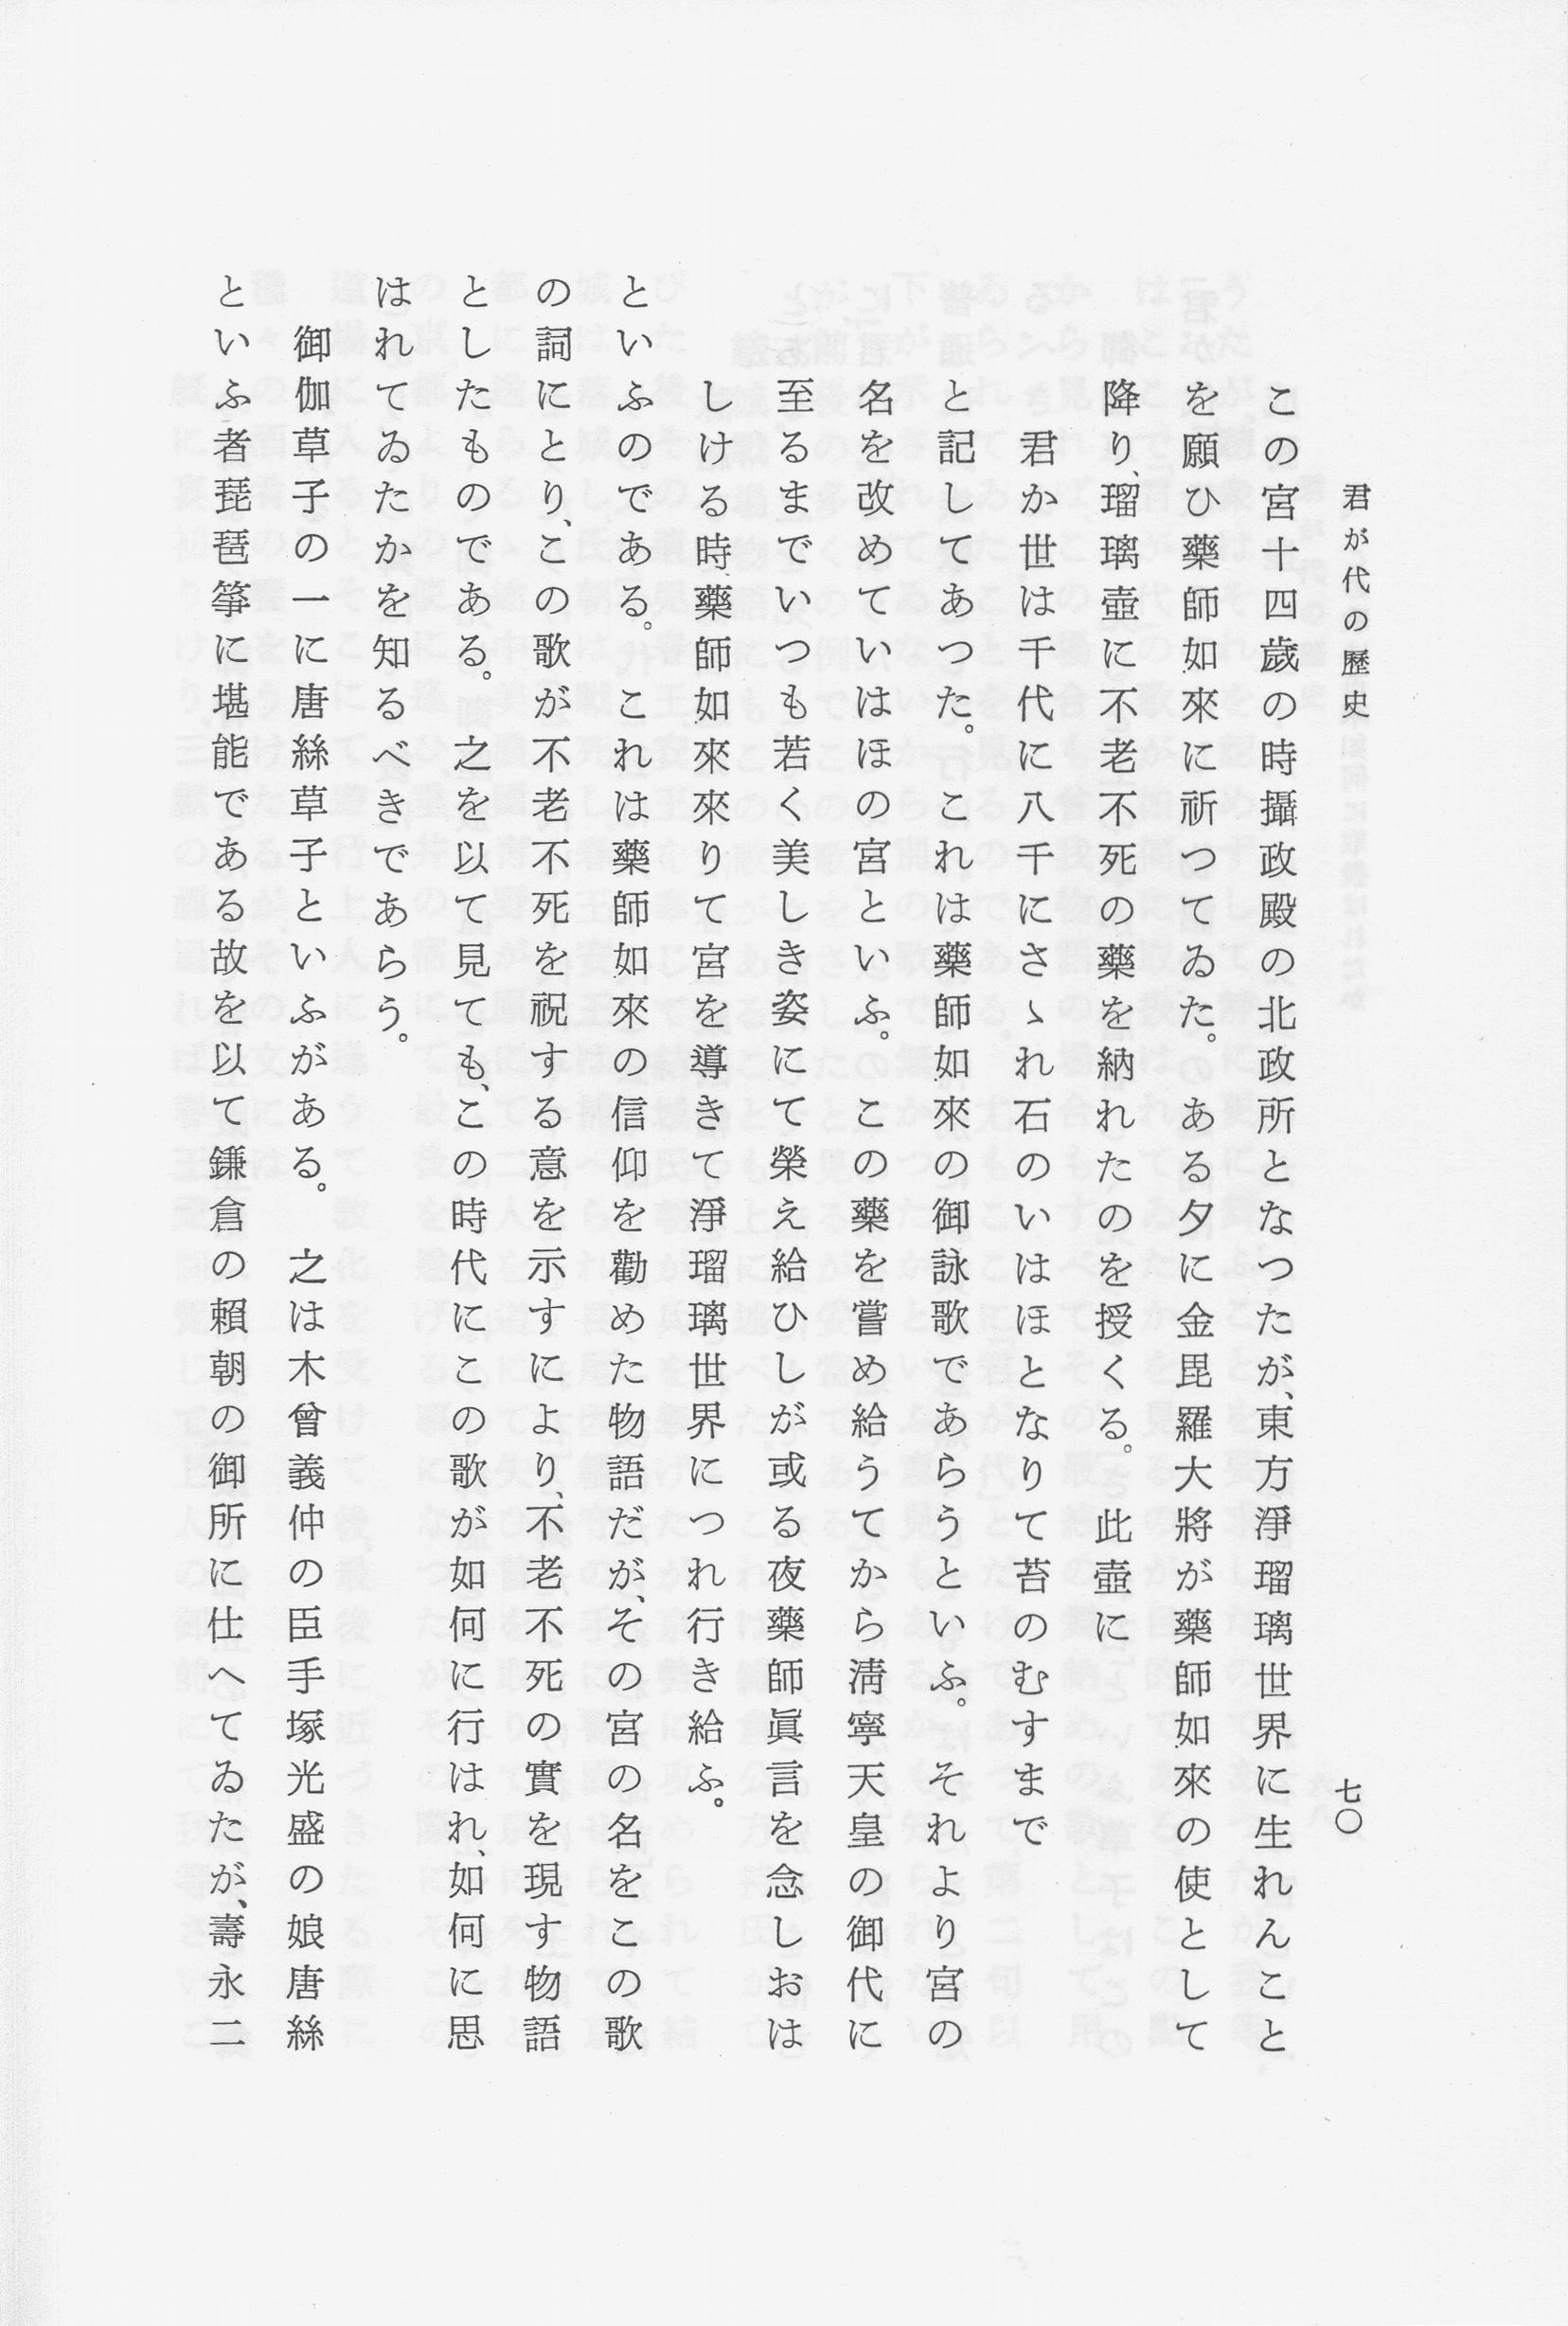 君が代の歴史
七〇
この宮十四歲の時攝政殿の北政所となつたが、東方淨瑠璃世界に生れんこと
を願ひ藥師如來に祈つてゐた。ある夕に金毘羅大將が藥師如來の使として
降り、瑠璃壺に不老不死の藥を納れたのを授くる。此壺に
君か世は千代に八千にさゝれ石のいはほとなりて苔のむすまで
と記してあつた。これは藥師如來の御詠歌であらうといふ。それより宮の
名を改めていはほの宮といふ。この藥を嘗め給うてから淸寧天皇の御代に
至るまでいつも若く美しき姿にて榮え給ひしが或る夜藥師眞言を念しおは
しける時藥師如來來りて宮を導きて淨瑠璃世界につれ行き給ふ。
といふのである。これは藥師如來の信仰を勸めた物語だが、その宮の名をこの歌
の詞にとり、この歌が不老不死を祝する意を示すにより、不老不死の實を現す物語
としたものである。之を以て見ても、この時代にこの歌が如何に行はれ、如何に思
はれてゐたかを知るべきであらう。
御伽草子の一に唐絲草子といふがある。之は木曾義仲の臣手塚光盛の娘唐絲
といふ者琵琶箏に堪能である故を以て鎌倉の賴朝の御所に仕へてゐたが、壽永二